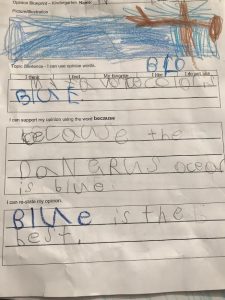 Opinion Blueprint - Kindergarten Name:
Picture/Illustration
Topic Sentence - I can use opinion words.
BLO
I think I feel My favorite I like I do not like
BlUE
I can support my opinion using the word because
becaue the
DANGRUS ocean
is blue.
I can re-state my opinion.
BlUe is the
best.